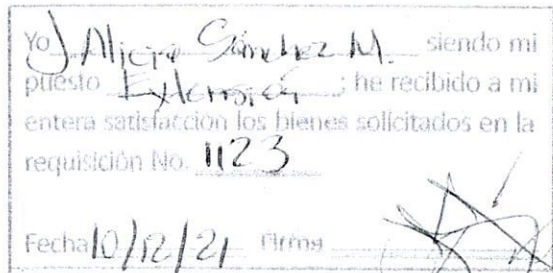 Yo J Alicia Sánchez M. siendo mi
puesto Extensión ; he recibido a mi
entera satisfacción los bienes solicitados en la
requisición No. 1123
Fecha 10/12/21 Firma